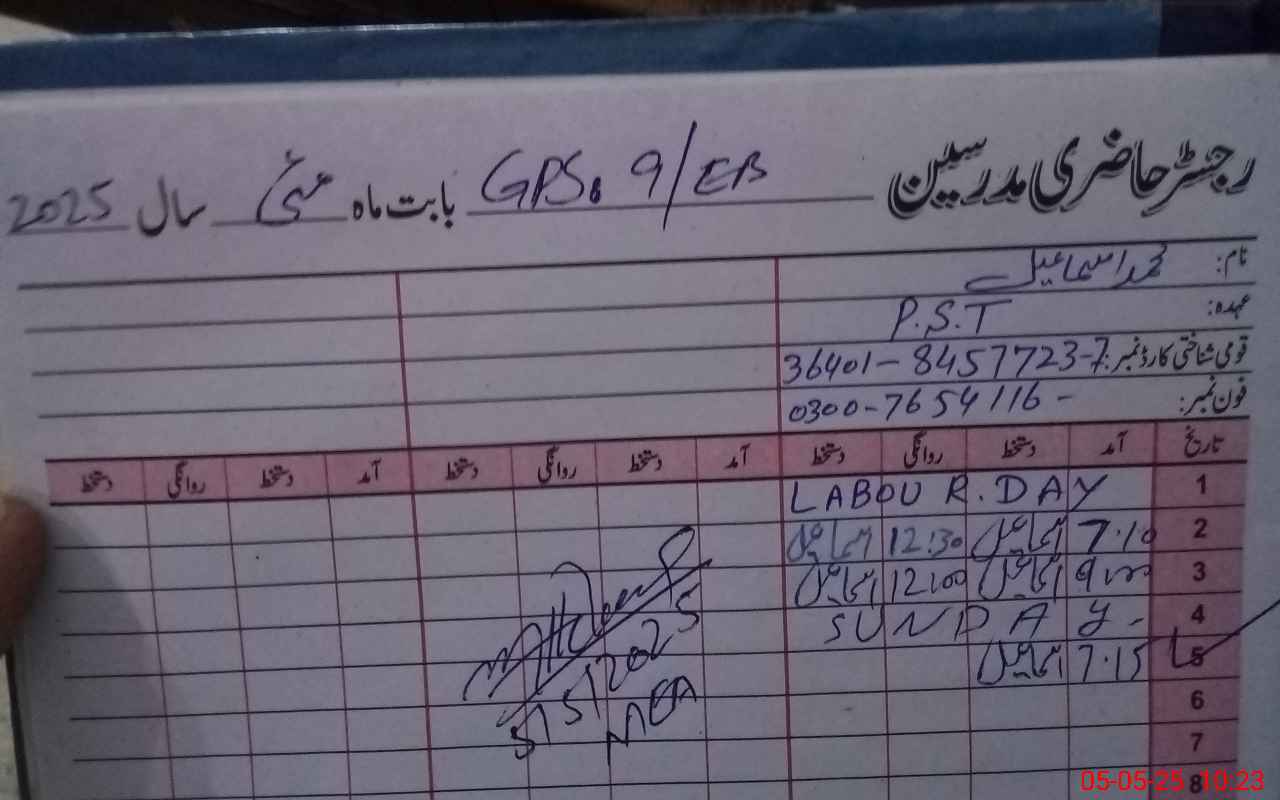 رجسٹر حاضری مدرسین GPS. 9/EB بابت ماہ مئی سال 2025
نام: محمد اسماعیل
عہدہ: P.S.T
قومی شناختی کارڈ نمبر: 36401-8457723-7
فون نمبر: 0300-7654116-
تاریخ آمد دستخط روانگی دستخط آمد دستخط روانگی دستخط آمد دستخط روانگی دستخط
1 LABOUR.DAY
2 7.10 اسماعیل 12:30 اسماعیل
3 9:00 اسماعیل 12:00 اسماعیل
4 SUNDAY-
5 7.15 اسماعیل
5/5/2025
6
MEA
7
8
05-05-25 10:23